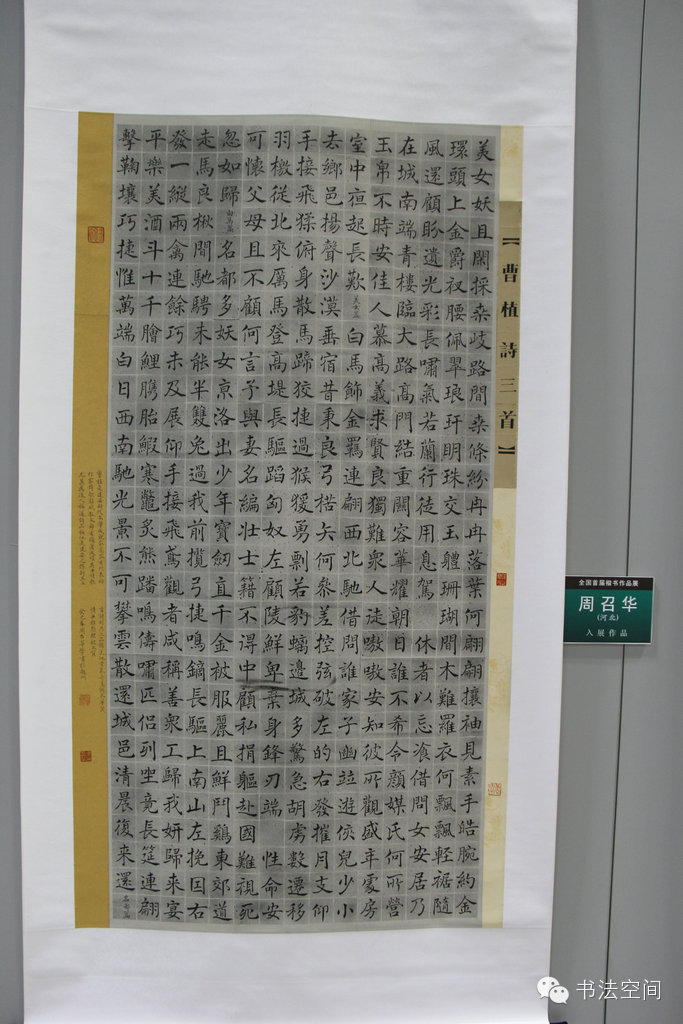 【曹植詩三首】
美女妖且閑採桑歧路間桑條紛冉冉落葉何翩翩攘袖見素手皓腕約金
環頭上金爵釵腰佩翠琅玕明珠交玉軆珊瑚間木難羅衣何飄飄輕裾隨
風還顧盼遺光彩長嘯氣若蘭行徒用息駕休者以忘飡借問女安居乃
在城南端青樓臨大路高門結重關容華耀朝日誰不希令顏媒氏何所營
玉帛不時安佳人慕高義求賢良獨難衆人徒嗷嗷安知彼所觀盛年處房
室中夜起長歎美女篇白馬飾金羈連翩西北馳借問誰家子幽並遊俠兒少小
去鄉邑揚聲沙漠垂宿昔秉良弓楛矢何參差控弦破左的右發摧月支仰
手接飛猱俯身散馬蹄狡捷過猴猨勇剽若豹螭邊城多驚急胡虜數遷移
羽檄從北來厲馬登高堤長驅蹈匈奴左顧陵鮮卑棄身鋒刃端性命安
可懷父母且不顧何言子與妻名編壯士籍不得中顧私捐軀赴國難視死
忽如歸白馬篇名都多妖女京洛出少年寶劒直千金被服麗且鮮鬥鷄東郊道
走馬長楸間馳騁未能半雙兔過我前攬弓捷鳴鏑長驅上南山左挽因右
發一縱兩禽連餘巧未及展仰手接飛鳶觀者咸稱善衆工歸我妍歸来宴
平樂美酒斗十千膾鯉臇胎鰕寒鼈炙熊蹯鳴儔嘯匹侣列坐竟長筵連翩
擊鞠壤巧捷惟萬端白日西南馳光景不可攀雲散還城邑清晨復来還名都篇
全国首届楷书作品展
周召华
(河北)
入展作品
书法空间